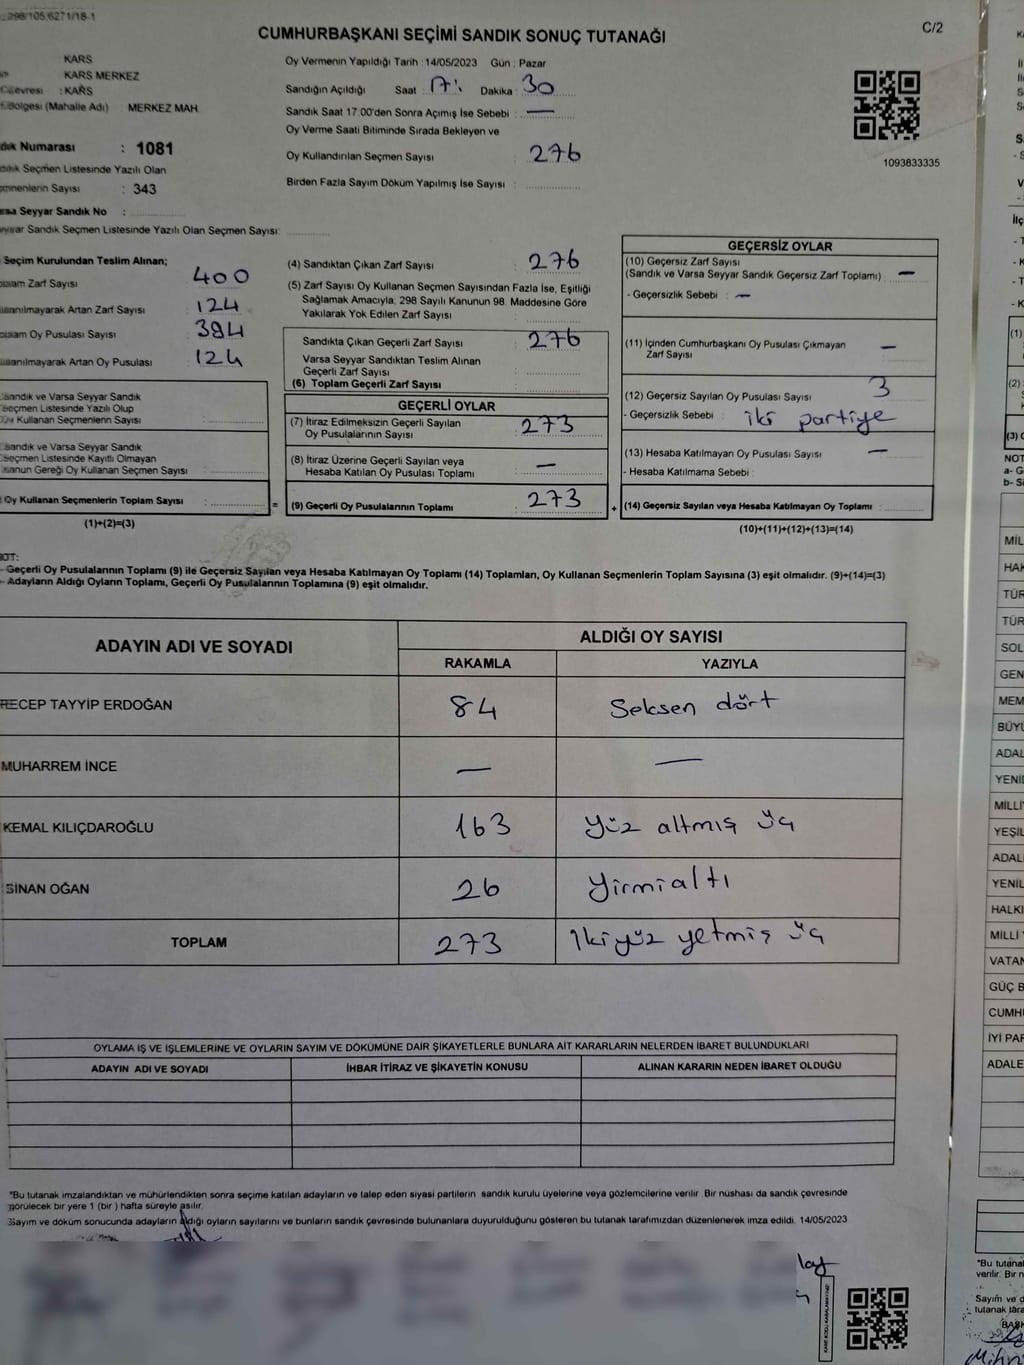 298/105.6271/18-1
C/2
CUMHURBAŞKANI SEÇİMİ SANDIK SONUÇ TUTANAĞI
KARS
KARS MERKEZ
: KARS
Bölgesi (Mahalle Adı) MERKEZ MAH
Numarası : 1081
Seçmen Listesinde Yazılı Olan
Sayısı : 343
Seyyar Sandık No :
Sandık Seçmen Listesinde Yazılı Olan Seçmen Sayısı:
Oy Vermenin Yapıldığı Tarih : 14/05/2023 Gün : Pazar
Sandığın Açıldığı Saat : 17: Dakika : 30
Sandık Saat 17:00'den Sonra Açımış İse Sebebi : —
Oy Verme Saati Bitiminde Sırada Bekleyen ve
Oy Kullandırılan Seçmen Sayısı : 276
Birden Fazla Sayım Döküm Yapılmış İse Sayısı :
1093833335
Seçim Kurulundan Teslim Alınan;
Zarf Sayısı : 400
Artan Zarf Sayısı : 124
Oy Pusulası Sayısı : 394
Artan Oy Pusulası : 124
Sandık ve Varsa Seyyar Sandık
Seçmen Listesinde Yazılı Olup
Kullanan Seçmenlerin Sayısı :
Sandık ve Varsa Seyyar Sandık
Seçmen Listesinde Kayıtlı Olmayan
Kanun Gereği Oy Kullanan Seçmen Sayısı :
Oy Kullanan Seçmenlerin Toplam Sayısı : =
(1)+(2)=(3)
(4) Sandıktan Çıkan Zarf Sayısı : 276
(5) Zarf Sayısı Oy Kullanan Seçmen Sayısından Fazla İse, Eşitliği
Sağlamak Amacıyla; 298 Sayılı Kanunun 98. Maddesine Göre
Yakılarak Yok Edilen Zarf Sayısı :
Sandıkta Çıkan Geçerli Zarf Sayısı : 276
Varsa Seyyar Sandıktan Teslim Alınan
Geçerli Zarf Sayısı :
(6) Toplam Geçerli Zarf Sayısı :
GEÇERLİ OYLAR
(7) İtiraz Edilmeksizin Geçerli Sayılan
Oy Pusulalarının Sayısı : 273
(8) İtiraz Üzerine Geçerli Sayılan veya
Hesaba Katılan Oy Pusulası Toplamı : —
(9) Geçerli Oy Pusulalarının Toplamı : 273 +
GEÇERSİZ OYLAR
(10) Geçersiz Zarf Sayısı
(Sandık ve Varsa Seyyar Sandık Geçersiz Zarf Toplamı) : —
- Geçersizlik Sebebi : —
(11) İçinden Cumhurbaşkanı Oy Pusulası Çıkmayan
Zarf Sayısı : —
(12) Geçersiz Sayılan Oy Pusulası Sayısı : 3
- Geçersizlik Sebebi : iki partiye
(13) Hesaba Katılmayan Oy Pusulası Sayısı : —
- Hesaba Katılmama Sebebi :
(14) Geçersiz Sayılan veya Hesaba Katılmayan Oy Toplamı :
(10)+(11)+(12)+(13)=(14)
NOT:
- Geçerli Oy Pusulalarının Toplamı (9) ile Geçersiz Sayılan veya Hesaba Katılmayan Oy Toplamı (14) Toplamları, Oy Kullanan Seçmenlerin Toplam Sayısına (3) eşit olmalıdır. (9)+(14)=(3)
- Adayların Aldığı Oyların Toplamı, Geçerli Oy Pusulalarının Toplamına (9) eşit olmalıdır.
ADAYIN ADI VE SOYADI
ALDIĞI OY SAYISI
RAKAMLA YAZIYLA
RECEP TAYYİP ERDOĞAN 84 Seksen dört
MUHARREM İNCE — —
KEMAL KILIÇDAROĞLU 163 Yüz altmış üç
SİNAN OĞAN 26 Yirmialtı
TOPLAM 273 İkiyüz yetmiş üç
OYLAMA İŞ VE İŞLEMLERİNE VE OYLARIN SAYIM VE DÖKÜMÜNE DAİR ŞİKAYETLERLE BUNLARA AİT KARARLARIN NELERDEN İBARET BULUNDUKLARI
ADAYIN ADI VE SOYADI İHBAR İTİRAZ VE ŞİKAYETİN KONUSU ALINAN KARARIN NEDEN İBARET OLDUĞU
*Bu tutanak imzalandıktan ve mühürlendikten sonra seçime katılan adayların ve talep eden siyasi partilerin sandık kurulu üyelerine veya gözlemcilerine verilir. Bir nüshası da sandık çevresinde
görülecek bir yere 1 (bir) hafta süreyle asılır.
Sayım ve döküm sonucunda adayların aldığı oyların sayılarını ve bunların sandık çevresinde bulunanlara duyurulduğunu gösteren bu tutanak tarafımızdan düzenlenerek imza edildi. 14/05/2023
(1)
(2)
(3)
NOT
a- G
b- S
MİL
HAK
TÜR
TÜR
SOL
GEN
MEM
BÜYÜ
ADAL
YENİ
MİLLİ
YEŞİL
ADAL
YENİL
HALKI
MİLLİ
VATAN
GÜÇ B
CUMH
İYİ PAR
ADALE
*Bu tutana
verilir. Bir n
Sayım ve d
tutanak tara